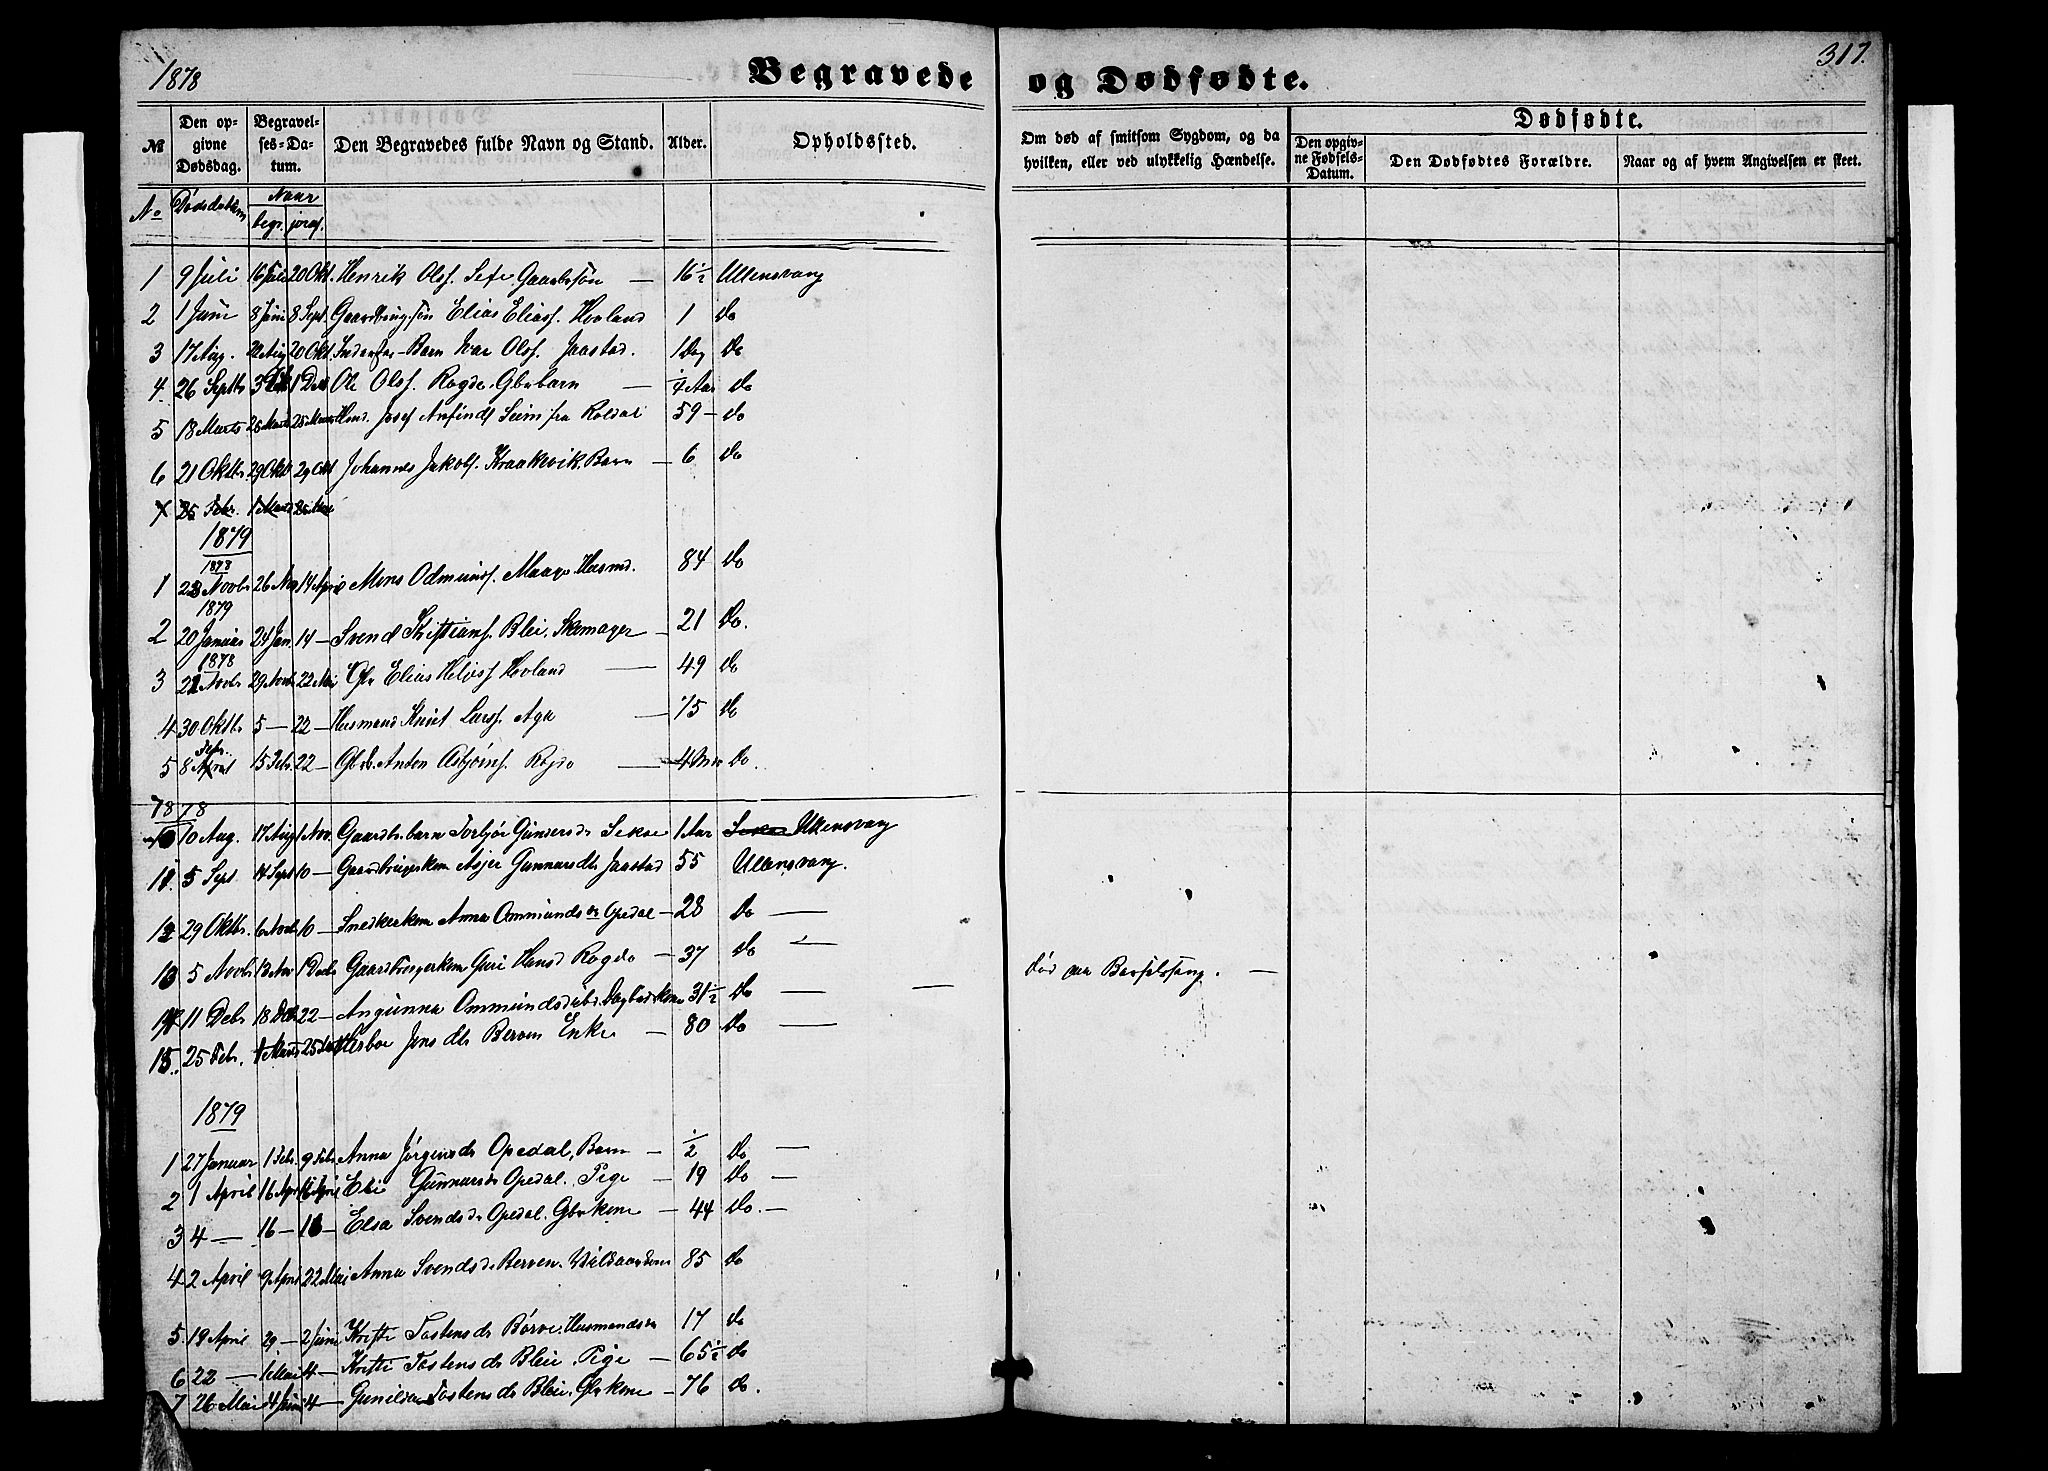 1878
Begravede og Dødfødte.
317.
Dødfødte.
№ Den opgivne Dødsdag. Begravelses-Datum. Den Begravedes fulde Navn og Stand. Alder. Opholdssted. Om død af smitsom Sygdom, og da hvilken, eller ved ulykkelig Hændelse. Den opgivne Fødsels-Datum. Den Dødfødtes Forældre. Naar og af hvem Angivelsen er skeet.
No Naar
begr. jordf.
1 9 Juli 16 Juli 20 Okt. Henrik Olsf. Sexe — 16½ Ullensvang
2 1 Juni 8 Juni 8 Sept. Elias Eliasf. Hovland 1 do
3 17 Aug. 20 Okt. Barn Ivar Olsf. Jaastad. 1 Dag Do
4. 26 Septbr 1 Ole Olsf. Rogde. Gbrbarn — ¼ Aar do
5 18 Marts Husmd. Josef Seim fra Roldal 59 — do
6 21 Oktbr. 29 Okt 29 Okt Johannes Jakobf. Kraakevik. Barn — 6 do
7 25 Febr. 1 Marts
1879
1878
1 Novbr 26 Nov 14 April Mons Odmundf. Maage. Husmd. 84 do
1879
2 20 Januar 24 Jan. 14 — Svend Kristianf. Blei. Skomager — 21 do.
1878
3 Novbr 29 Novbr 22 Mai Gbr Elias Hovland — 49 do
4 30 Oktbr 5 — 22 — Husmand Knut Larsf. Aga — 75 do
Febr.
5 8 April 15 Febr. 22 — Gbrb. Anton Asbjörnf. Rogde — 4 Do.
1878
10 10 Aug. 17 Aug 1 Nov. Gaardbr.barn Torbjör Sekse 1 Aar Ullensvang
11 5 Sept. 14 Sept 10 — Gaardbrugerkone Gunnarsdtr Jaastad 55 Ullensvang.
12 29 Oktbr. 6 Novbr 10 — Snedkerkone Anna Ommundsdr Opedal — 28 do —
13 5 Novbr 13 Nov 1 Decbr Gaardbrugerkone Guri Hansd Rogde — 37 do — død paa Barselseng. —
14 11 Debr 18 22 — Angunna Ommundsdtr. 31½ Do —
15. 25 Febr. 1 Marts 25 Jens dtr Berven Enke — 80 do —
1879
1 27 Januar 1 Febr. 9 Febr Anna Jørgensdr Opedal, Barn — ½ do —
2 1 April 16 April 16 April Eli Gunnarsdr Opedal. Pige — 19 do —
3 4 — 16 — 16 — Elsa Svendsdr Opedal. Gbrkone — 44 do. —
4 2 April 9 April 22 Mai Anna Svendsdr Berven. 85 do
5 19 April 29 — 2 Juni Kristi Tostensdr Börve. 17 do
6 22 — 1 Mai 4 — Kristi Tostensdr Bleie. Pige — 65½ do
7 26 Mai 4 Juni 4 — Gunilda Tostensdr Bleie. Gbrkone — 76 do.